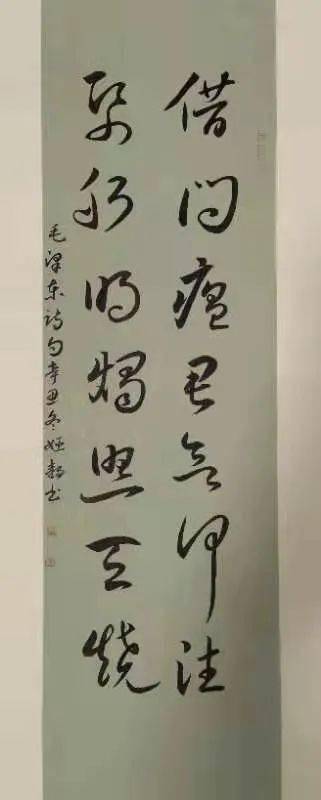 借问瘟君欲何往
纸船明烛照天烧
毛泽东诗句辛丑冬书